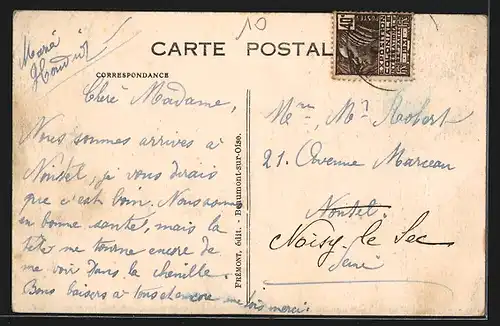 10
CARTE POSTALE
CORRESPONDANCE
Chère Madame,
Nous sommes arrives a
Nointel, je vous dirais
que c'est loin. Nous sommes
en bonne santé, mais la
tête me tourne encore de
me voir dans la chenille.
Bons baisers a tous et encore une fois merci.
FRÉMONT, édit. - Beaumont-sur-Oise.
POSTES
Mme, Mr Robert
21. Avenue Marceau
Nointel.
Noisy-le Sec
Seine